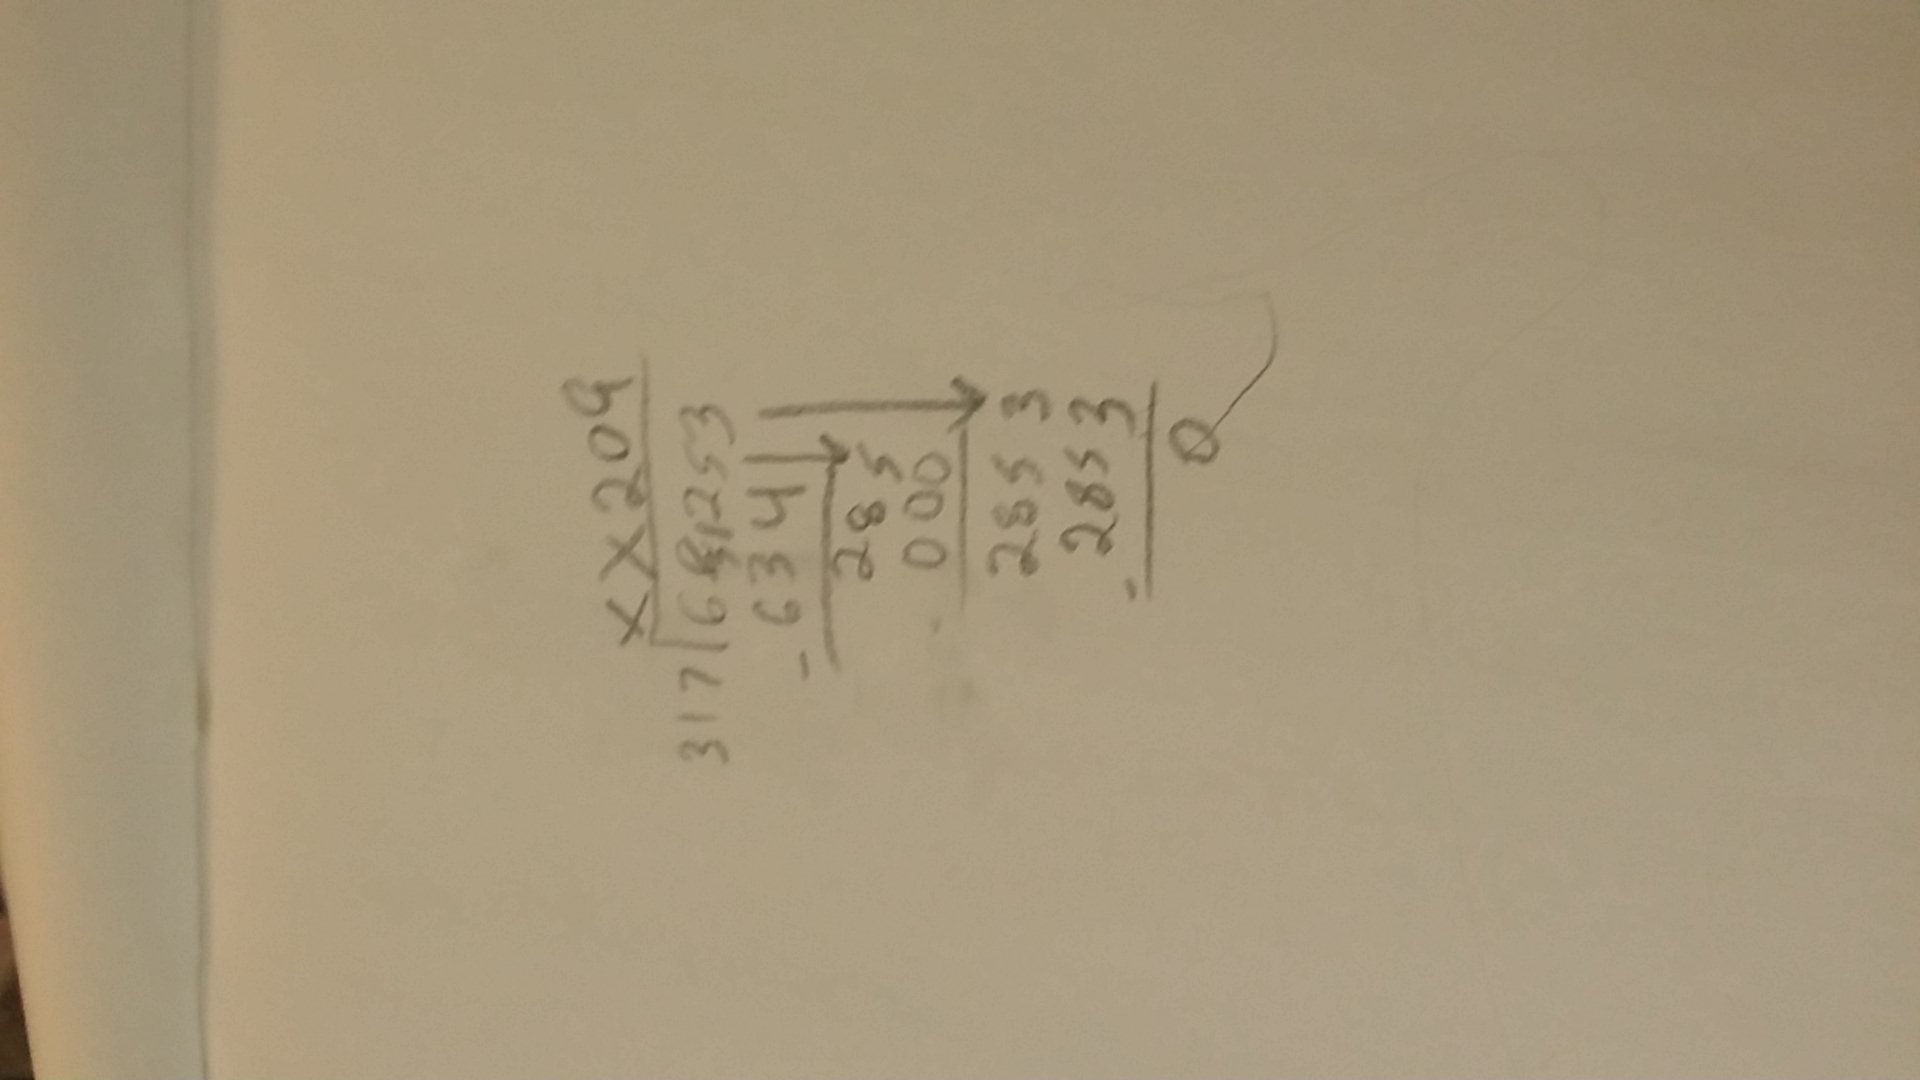 XX209
317 66253
- 634
285
- 000
2853
- 2853
0